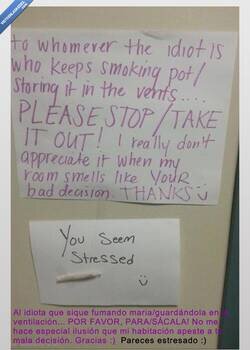 to whomever the idiot is
who keeps smoking pot/
storing it in the vents....
PLEASE STOP/TAKE
IT OUT! I really don't
appreciate it when my
room smells like YOUR
bad decision. THANKS :)
You Seem
Stressed
:)
Al idiota que sique fumando maria/guardándola en la
ventilación... POR FAVOR, PARA/SÁCALA! No me
hace especial ilusión que mi habitación apeste a tu
mala decisión. Gracias :) Pareces estresado :)